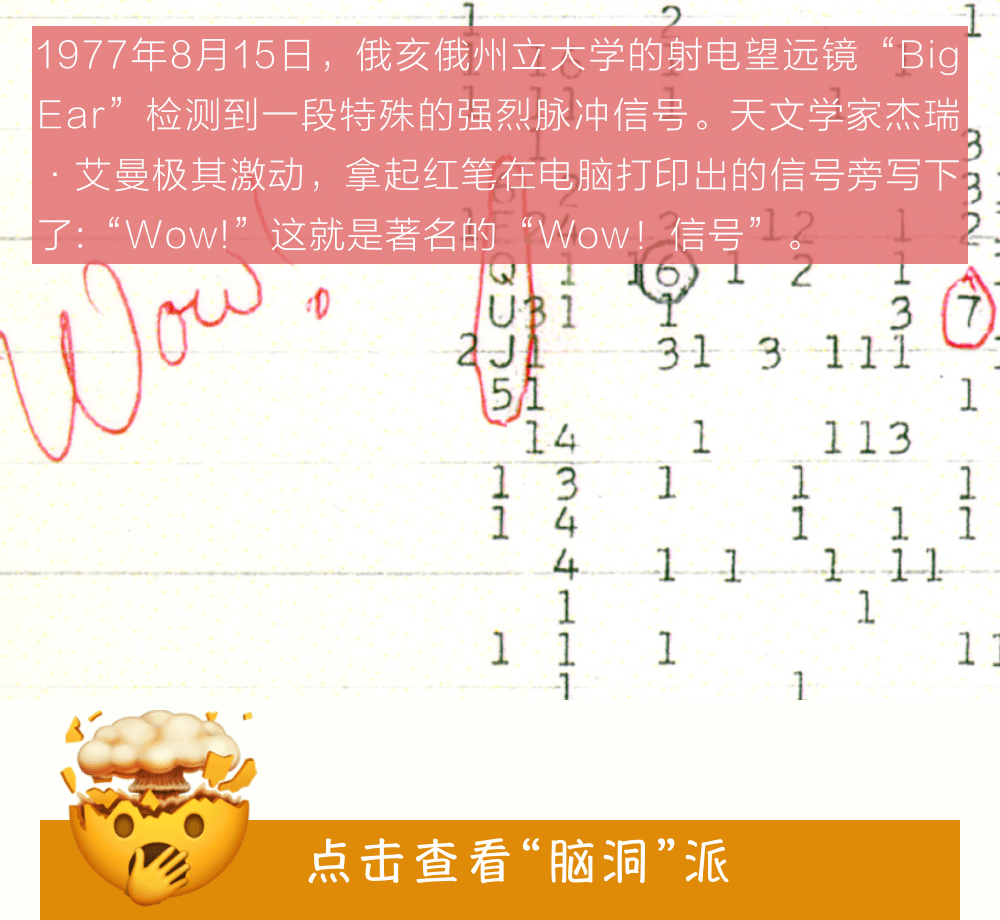 1977年8月15日，俄亥俄州立大学的射电望远镜“Big
Ear”检测到一段特殊的强烈脉冲信号。天文学家杰瑞
·艾曼极其激动，拿起红笔在电脑打印出的信号旁写下
了:“Wow!”这就是著名的“Wow！信号”。
Wow!
Q 1 16 1 2 1
U31 1 3 7
2J1 31 3 111
51 1
14 1 113
1 3 1 1 1
1 4 1 1 1
4 1 1 1 11
1 1
1 1 1 11
1 1
点击查看“脑洞”派